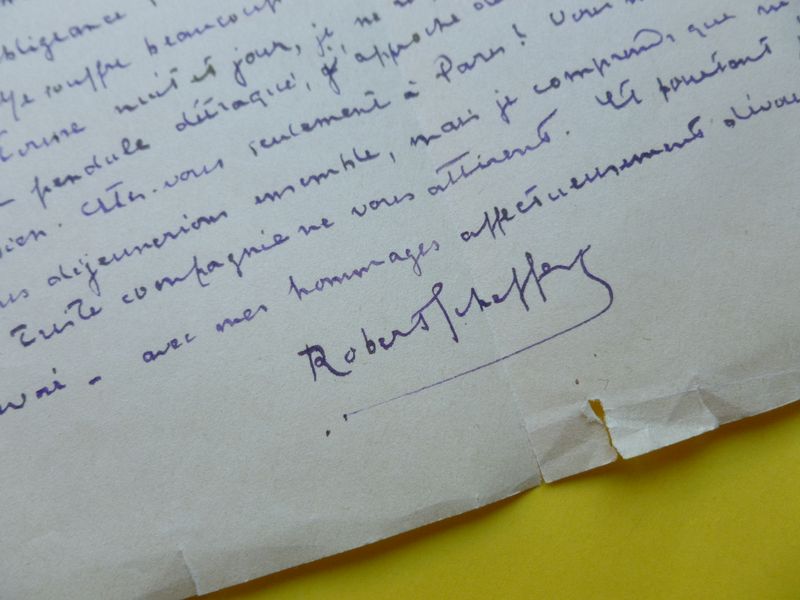 obligeance
Je souffre beaucoup
tousse nuit et jour, je ne
pendule détraqué, j'approche de
Etes-vous seulement à Paris? Vous
déjeunerions ensemble, mais je comprends que ma
triste compagnie ne vous attirent. Et pourtant
avec mes hommages affectueusement dévoués
Robert Scheffer